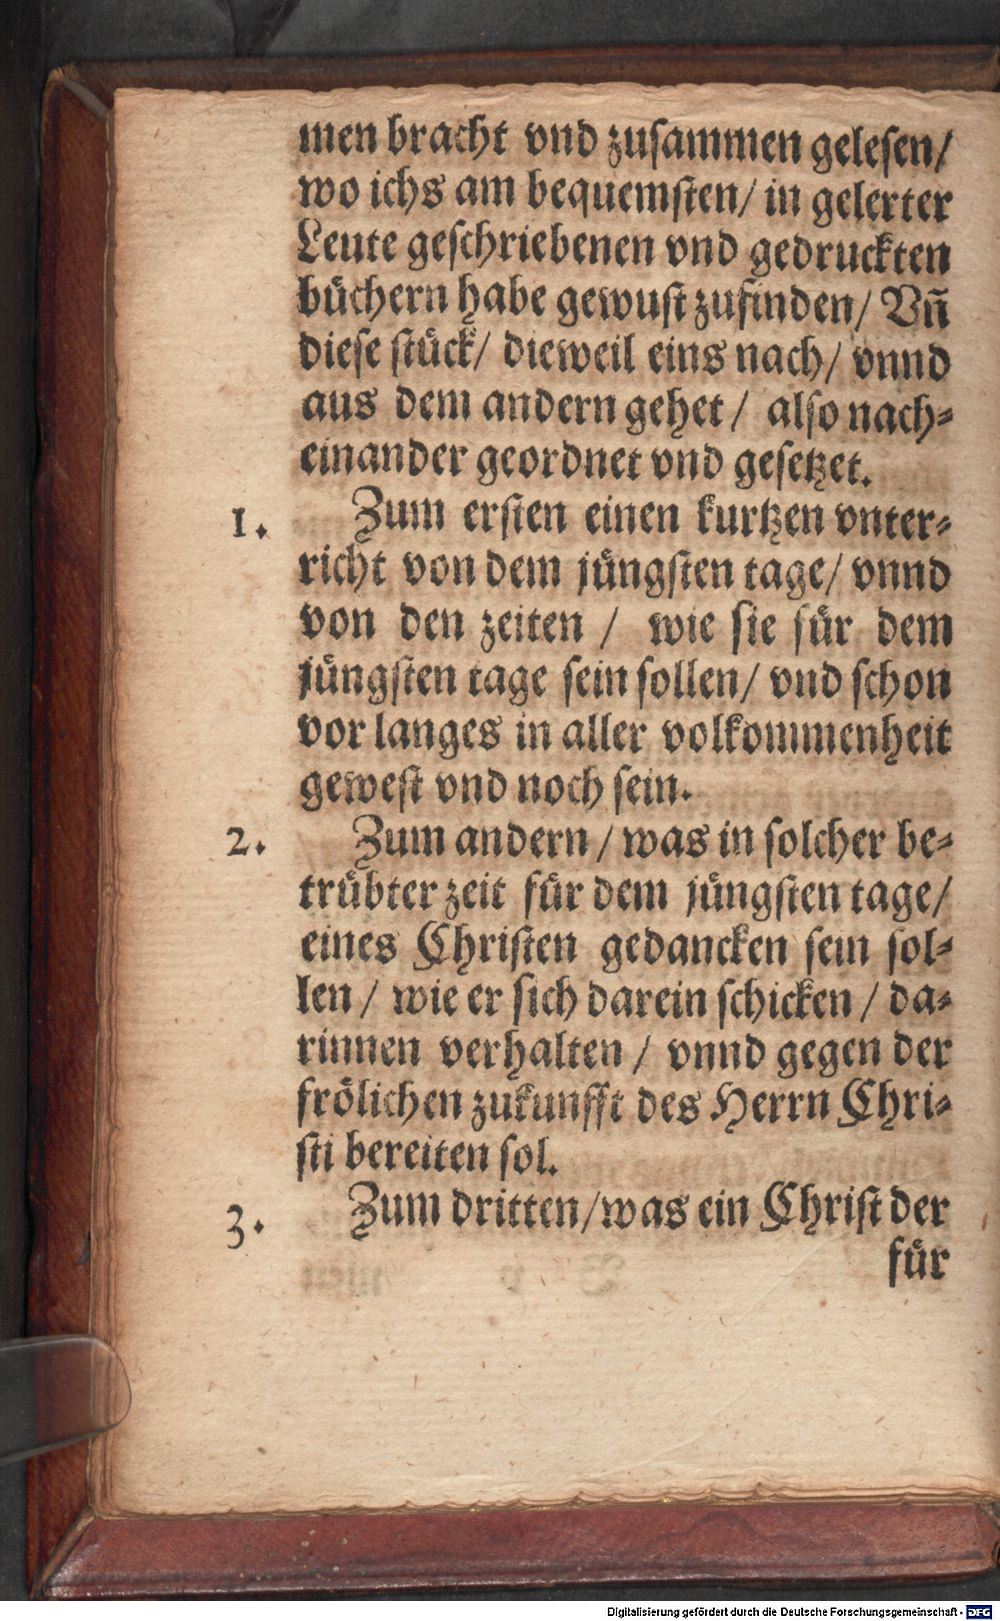 men bracht vnd zusammen gelesen/
wo ichs am bequemsten/ in gelerter
Leute geschriebenen vnd gedruckten
büchern habe gewust zufinden/ Vñ
diese stück/ dieweil eins nach/ vnnd
aus dem andern gehet/ also nach-
einander geordnet vnd gesetzet.
1. Zum ersten einen kurtzen vnter-
richt von dem jüngsten tage/ vnnd
von den zeiten / wie sie für dem
jüngsten tage sein sollen/ vnd schon
vor langes in aller volkommenheit
gewest vnd noch sein.
2. Zum andern / was in solcher be-
trübter zeit für dem jüngsten tage/
eines Christen gedancken sein sol-
len / wie er sich darein schicken / da-
rinnen verhalten / vnnd gegen der
frölichen zukunfft des Herrn Chri-
sti bereiten sol.
3. Zum dritten/was ein Christ der
für
Digitalisierung gefördert durch die Deutsche Forschungsgemeinschaft - DFG